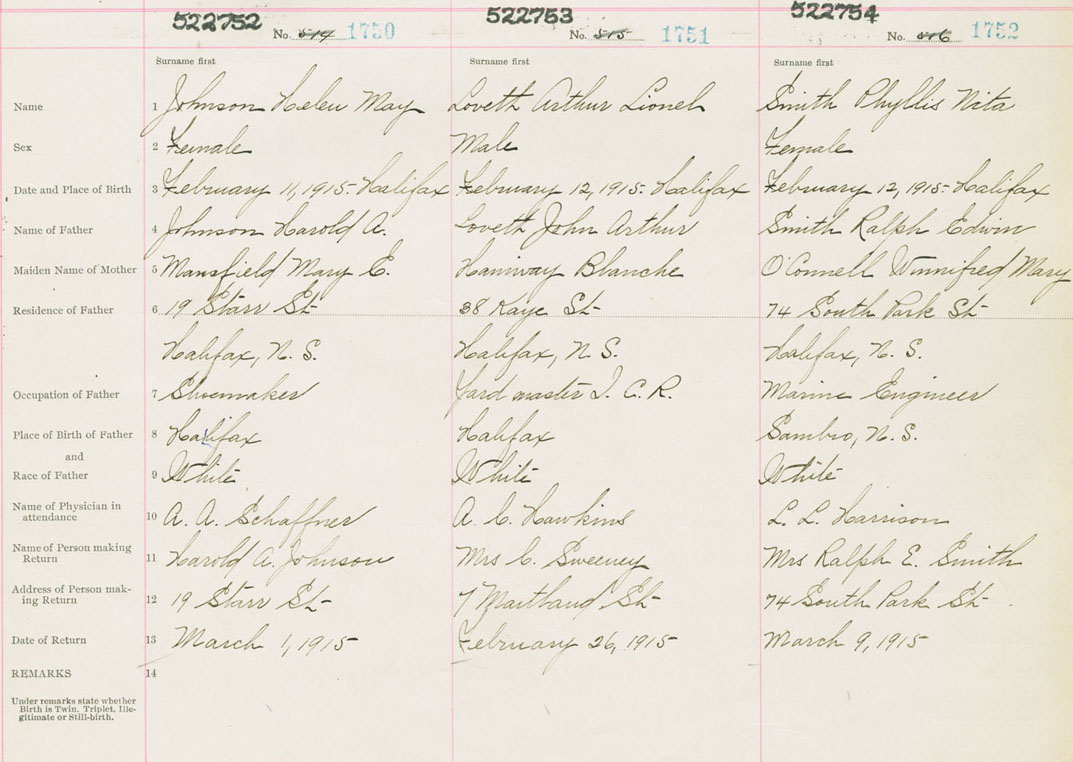 522752 522753 522754
No. 514 1750 No. 515 1751 No. 516 1752
Surname first Surname first Surname first
Name 1 Johnson Helen May Loveth Arthur Lionel Smith Phyllis Nita
Sex 2 Female Male Female
Date and Place of Birth 3 February 11, 1915 - Halifax February 12, 1915 - Halifax February 12, 1915 - Halifax
Name of Father 4 Johnson Harold A. Loveth John Arthur Smith Ralph Edwin
Maiden Name of Mother 5 Mansfield Mary E. Blanche O'Connell Winnifred Mary
Residence of Father 6 19 Starr St 38 Kaye St 74 South Park St
Halifax, N. S. Halifax, N S. Halifax, N. S.
Occupation of Father 7 Shoemaker Yard master I. C. R. Marine Engineer
Place of Birth of Father 8 Halifax Halifax Sambro, N. S.
and
Race of Father 9 White White White
Name of Physician in
attendance 10 A. A. Schaffner A. C. Hawkins L. L. Harrison
Name of Person making
Return 11 Harold A. Johnson Mrs C. Sweeney Mrs Ralph E. Smith
Address of Person mak-
ing Return 12 19 Starr St 7 Maitland St 74 South Park St
Date of Return 13 March 1, 1915 February 26, 1915 March 9, 1915
REMARKS 14
Under remarks state whether
Birth is Twin, Triplet, Ille-
gitimate or Still-birth.